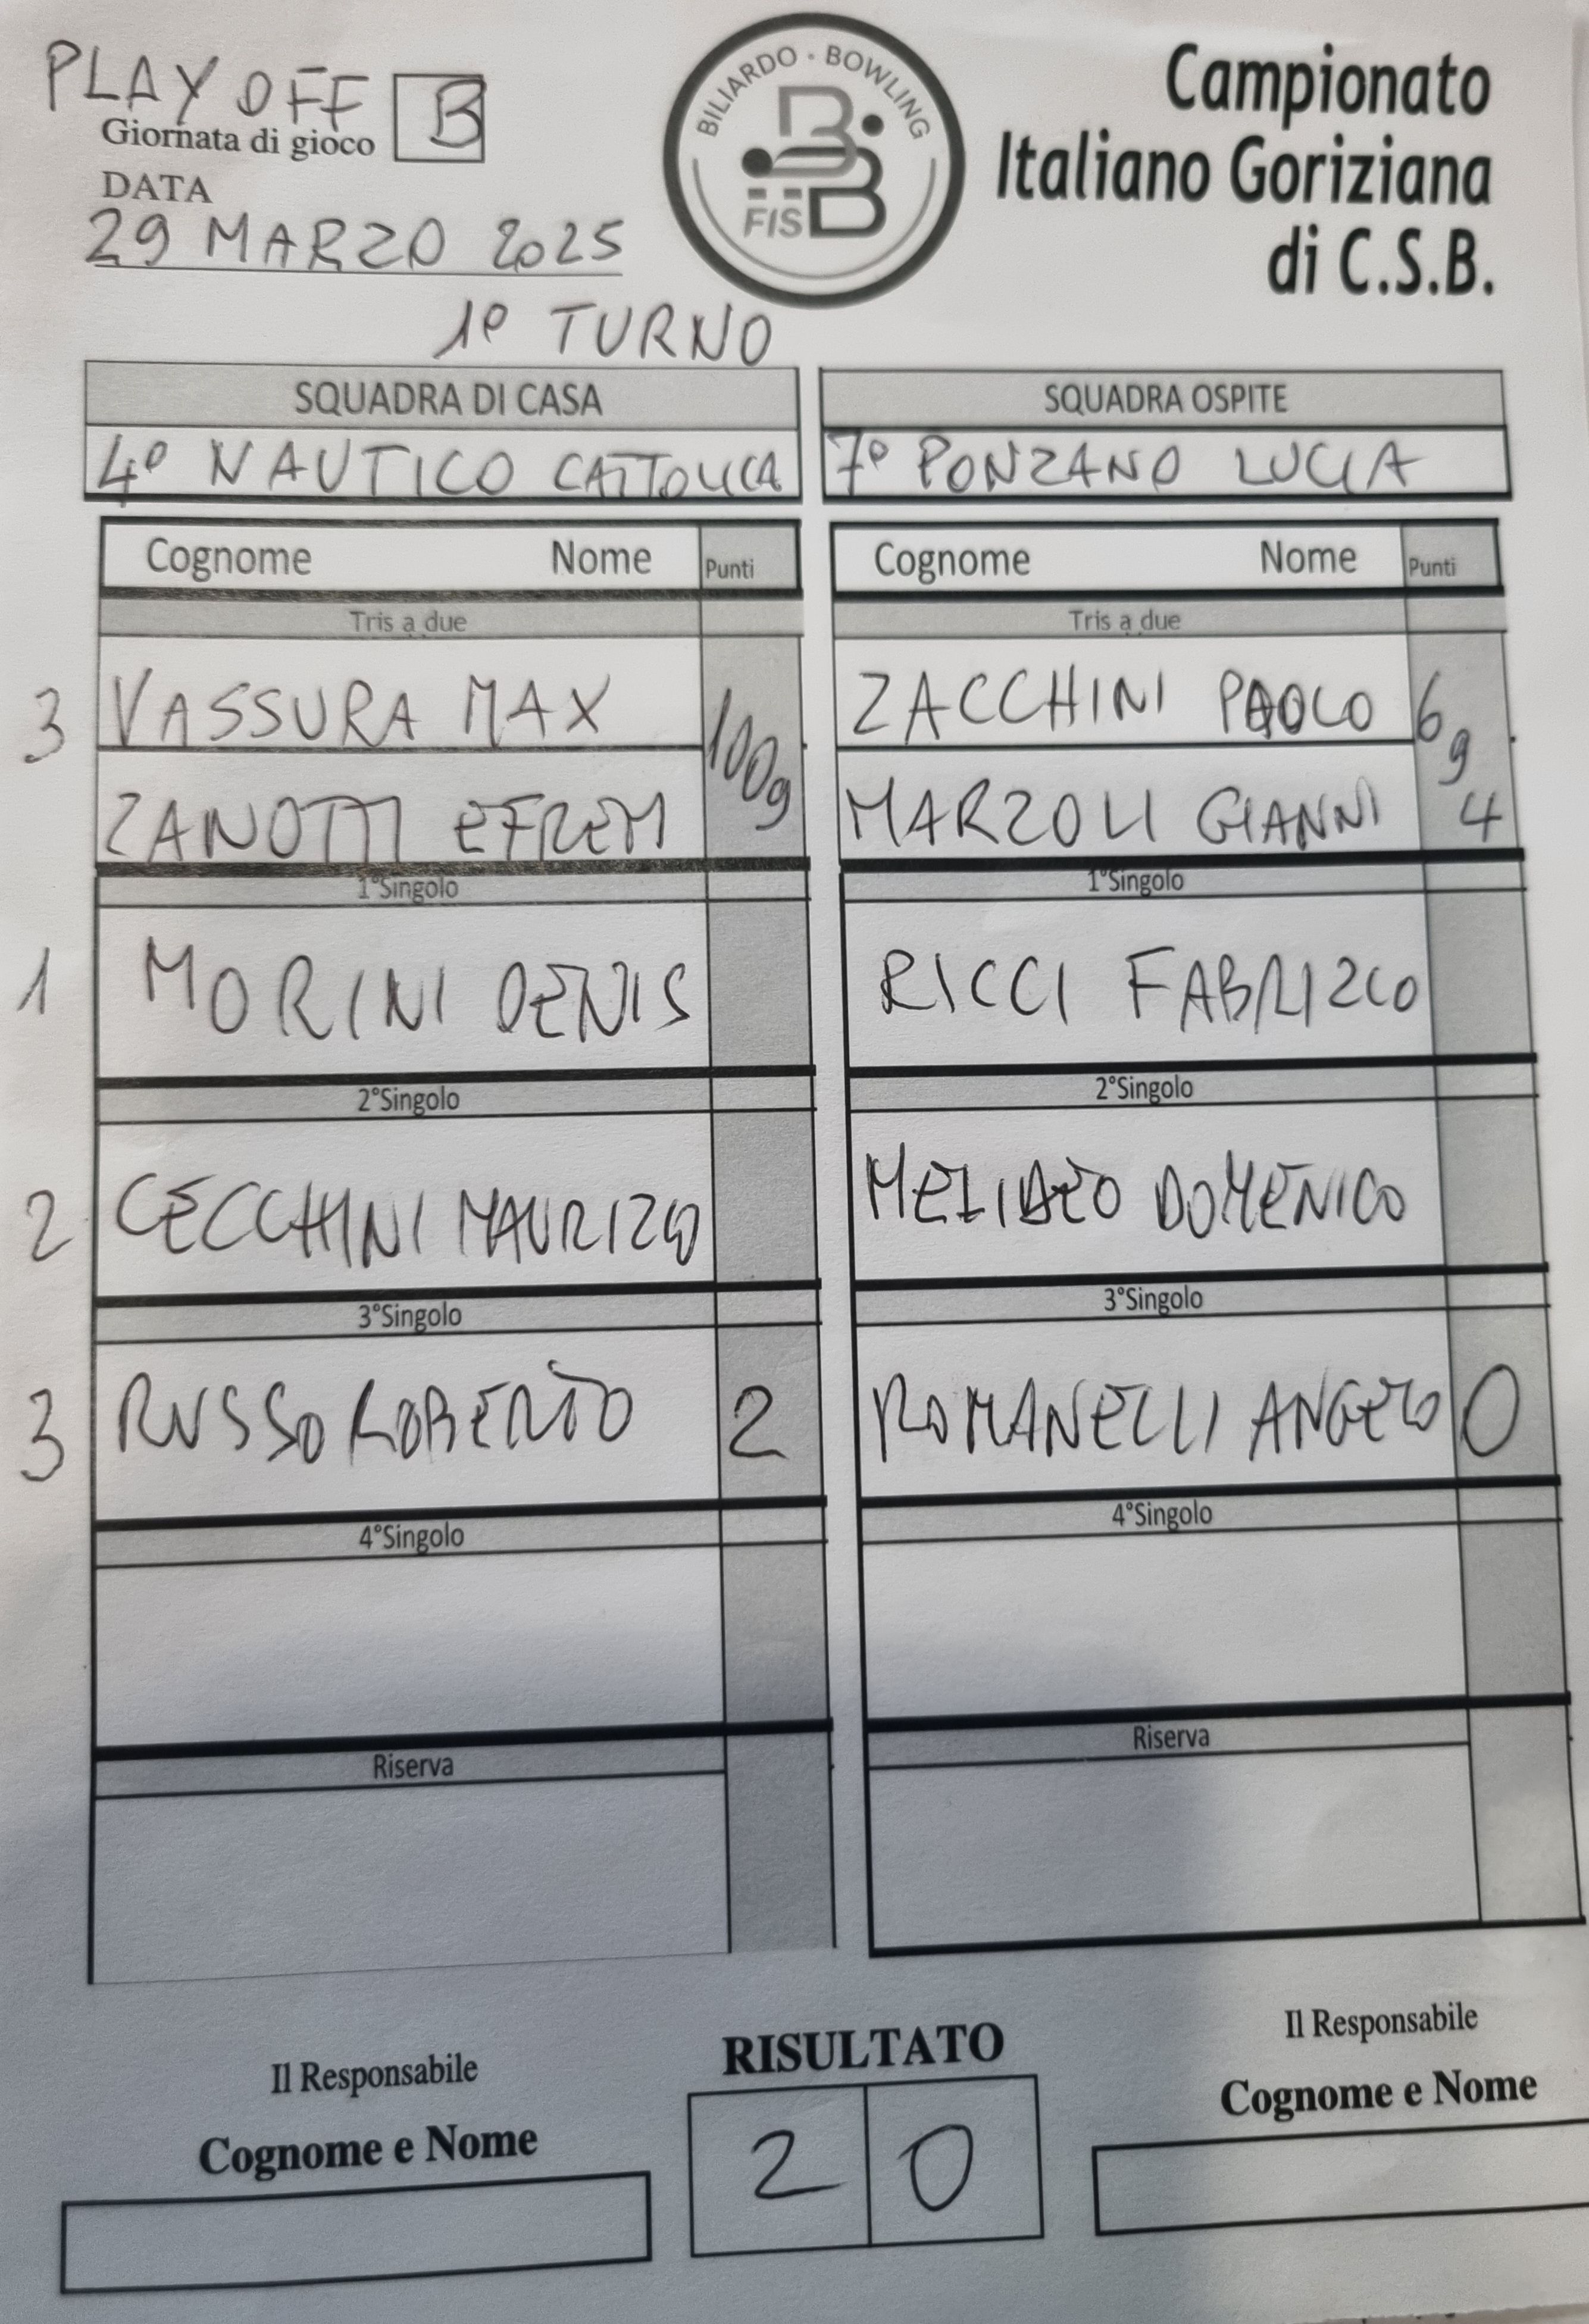 PLAY OFF B
Giornata di gioco
DATA
29 MARZO 2025
BILIARDO · BOWLING
FISBB
Campionato
Italiano Goriziana
di C.S.B.
1° TURNO
SQUADRA DI CASA SQUADRA OSPITE
4° NAUTICO CATTOLICA 7° PONZANO LUCIA
Cognome Nome Punti Cognome Nome Punti
Tris a due Tris a due
3 VASSURA MAX 1009 ZACCHINI PAOLO 694
ZANOTTI EFREM MARZOLI GIANNI
1°Singolo 1°Singolo
1 MORINI DENIS RICCI FABRIZIO
2°Singolo 2°Singolo
2 CECCHINI MAURIZIO DOMENICO
3°Singolo 3°Singolo
3 RUSSO ROBERTO 2 ROMANELLI ANGELO 0
4°Singolo 4°Singolo
Riserva Riserva
Il Responsabile RISULTATO Il Responsabile
Cognome e Nome 2 0 Cognome e Nome